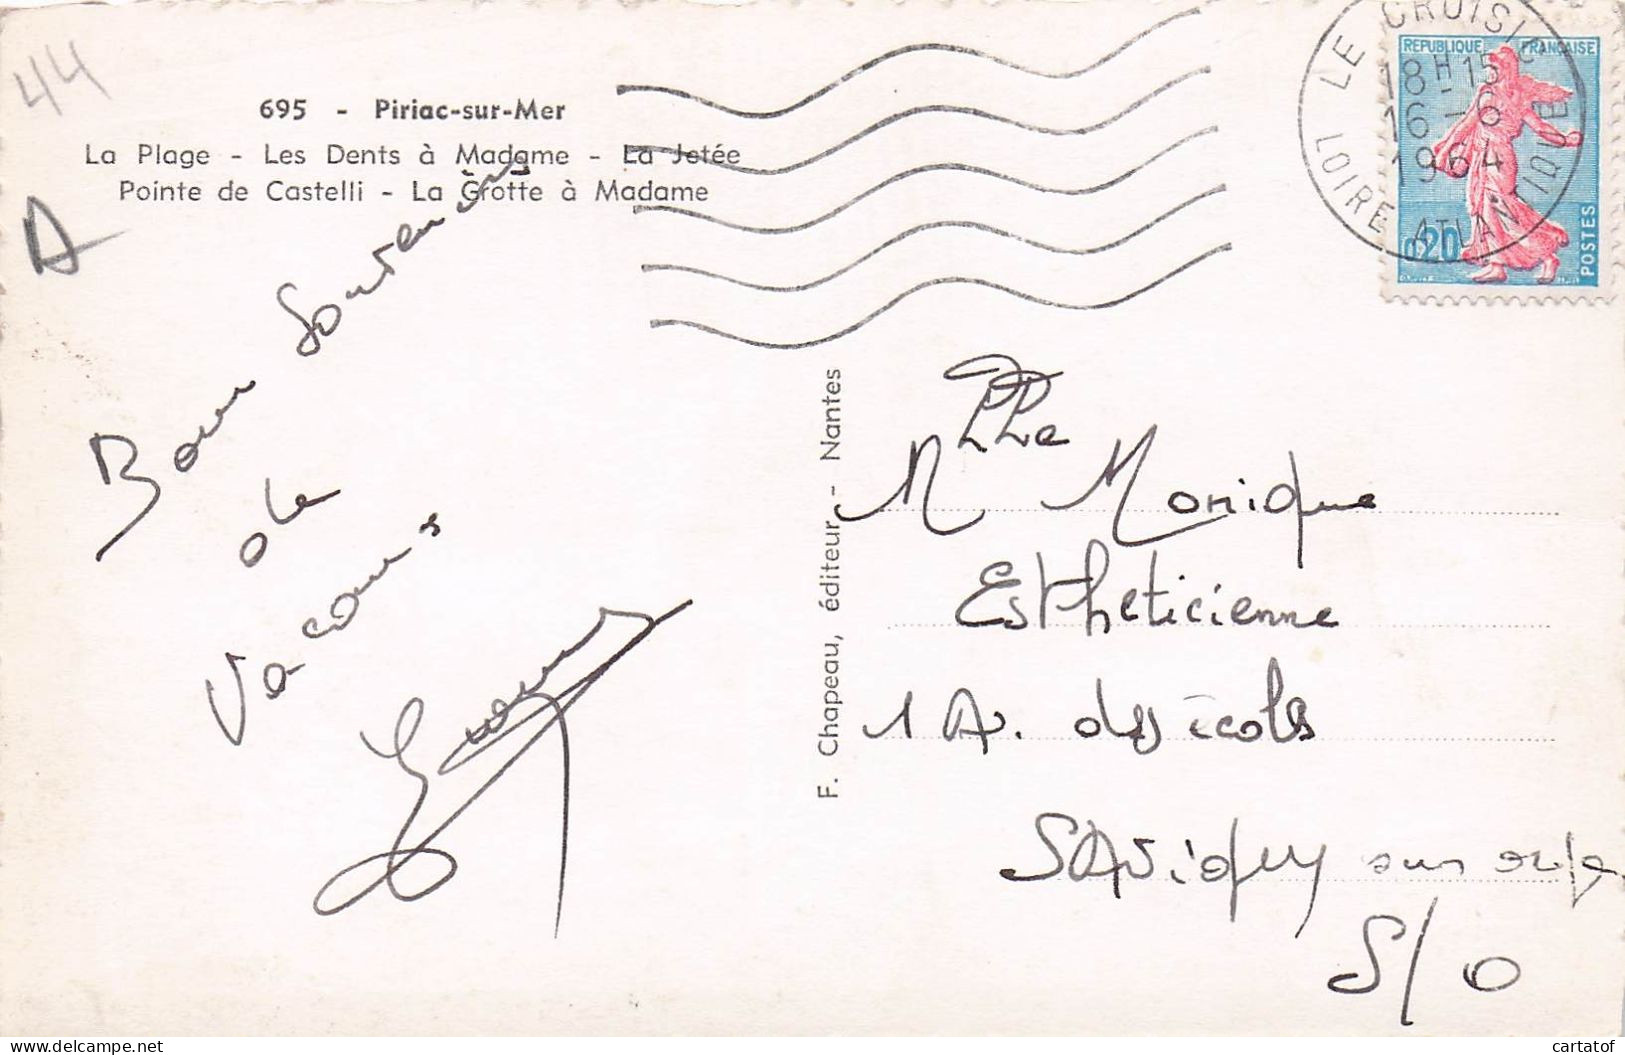 44
695 - Piriac-sur-Mer
La Plage - Les Dents à Madame - La Jetée
Pointe de Castelli - La Grotte à Madame
A
Bons Souvenirs
de
Vacances
F. Chapeau, éditeur - Nantes
LE CROISIC
18H-15
16-6
1964
LOIRE ATLANTIQUE
REPUBLIQUE FRANÇAISE
0,20
POSTES
Mlle Monique
Estheticienne
1 Av. des écoles
Savigny sur orge
S/O
delcampe.net
cartatof